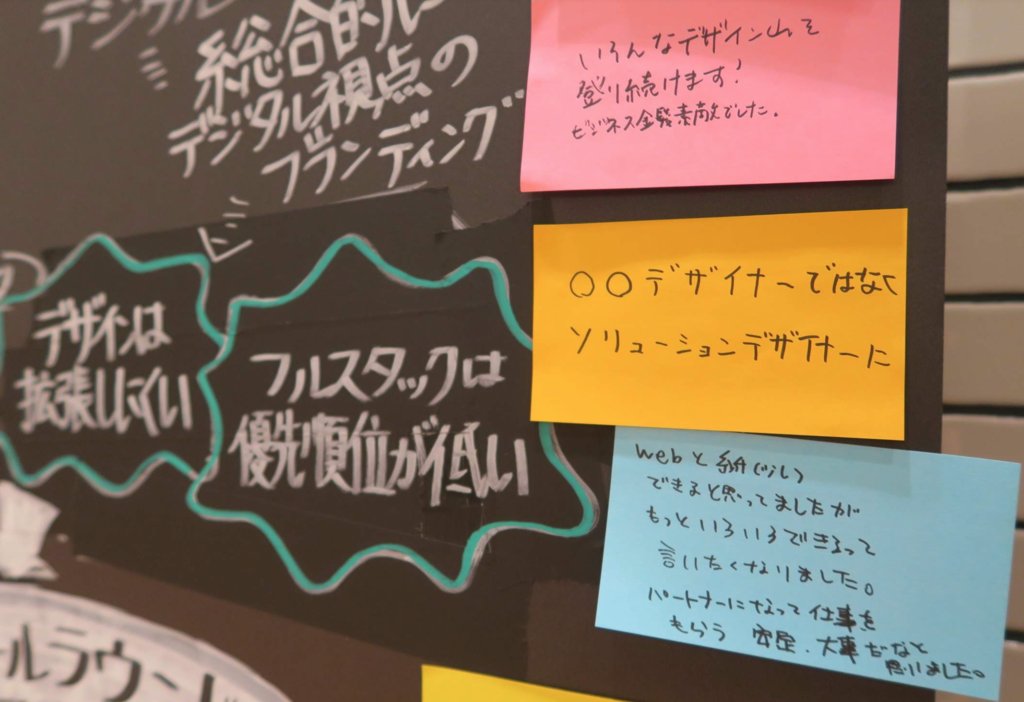 デジタル
総合的
デジタル視点の
ブランディング
デザインは
拡張しにくい
フルスタックは
優先順位が低い
ールラウンド
いろんなデザイン山を
登り続けます!
ビジネス金髪素敵でした.
〇〇デザイナーではなく
ソリューションデザイナーに
webと紙(少し)
できると思ってましたが
もっといろいろできるって
言いたくなりました。
パートナーになって仕事を
もらう 大事だなと
思いました。